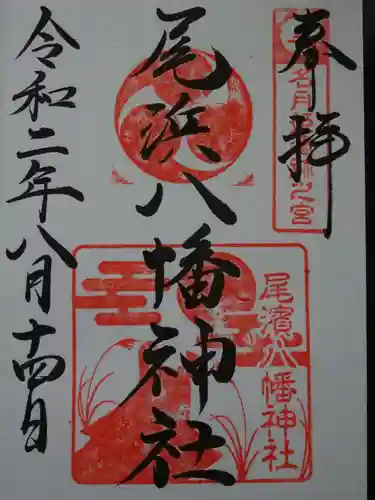 奉拝
尾浜八幡神社
尾濱八幡神社
令和二年八月十四日